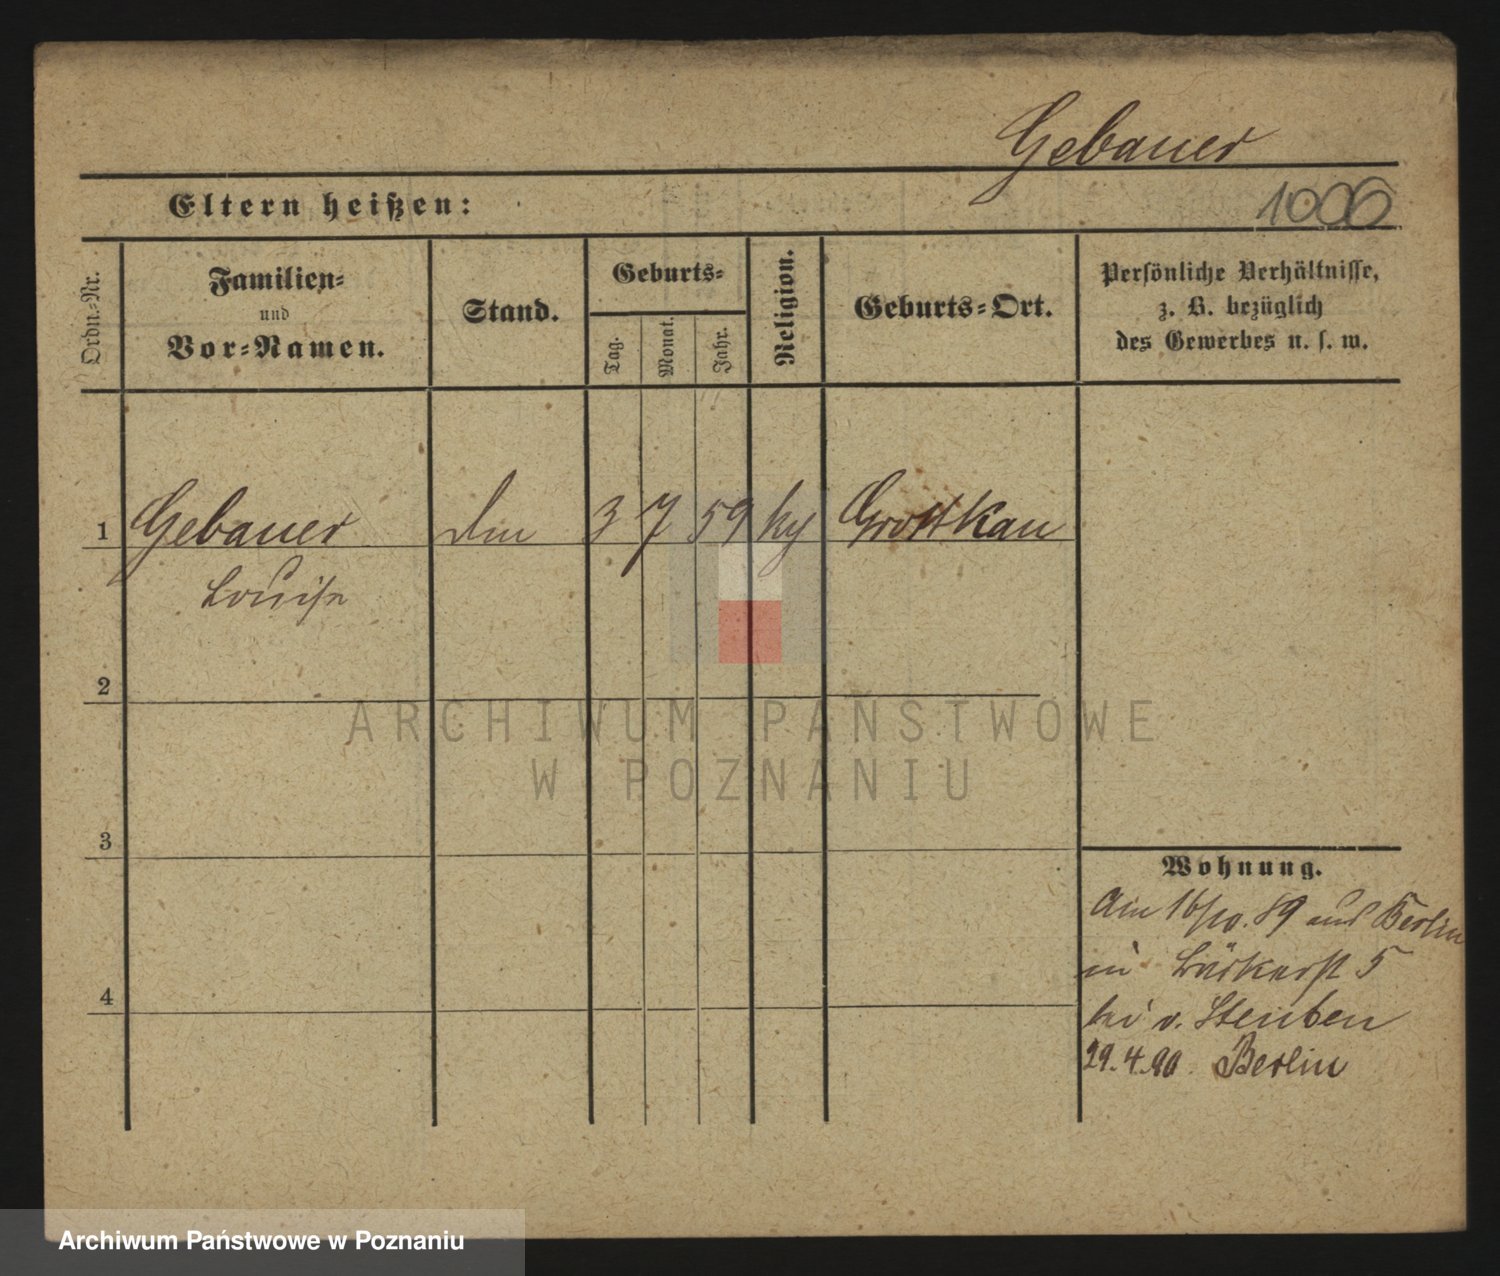 Gebauer
Eltern heißen:
1006
Ordn.-Nr.
Familien-
und
Vor-Namen.
Stand.
Geburts-
Tag.
Monat.
Jahr.
Religion.
Geburts-Ort.
Persönliche Verhältnisse,
z. B. bezüglich
des Gewerbes u. s. w.
1 Gebauer 3 7 59 Grottkau
Louise
2
ARCHIWUM PAŃSTWOWE
W POZNANIU
3
Wohnung.
Am 16/10. 89 aus Berlin
in 5
bei v. Steuben
4
29.4.90. Berlin
Archiwum Państwowe w Poznaniu